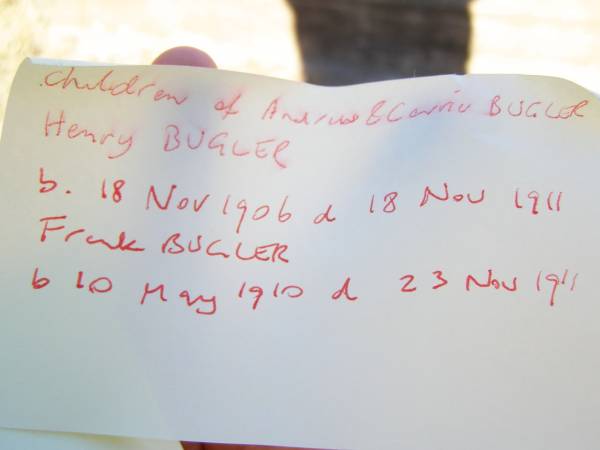 Children of Andrew & Carrie BUGLER
Henry BUGLER
b. 18 Nov 1906 d 18 Nov 1911
Frank BUGLER
b 10 May 1910 d 23 Nov 1911